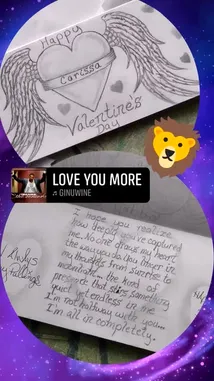 Happy
Carissa
Valentine's
Day
LOVE YOU MORE
GINUWINE
I hope you realize
how deeply you've captured
me. No one draws my heart
the way you do. You linger in
my thoughts from sunrise to
moonlight — the kind of
presence that stirs something
quiet yet endless in me
I'm not halfway with you —
I'm all in completely.
Always